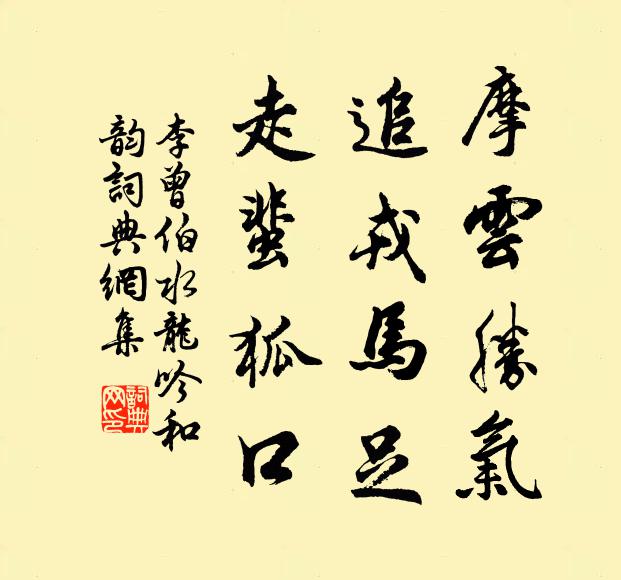 摩雲勝氣
追戎馬足
走蜚狐口
李曾伯水龍吟和
韵詞典網集
詞典網印